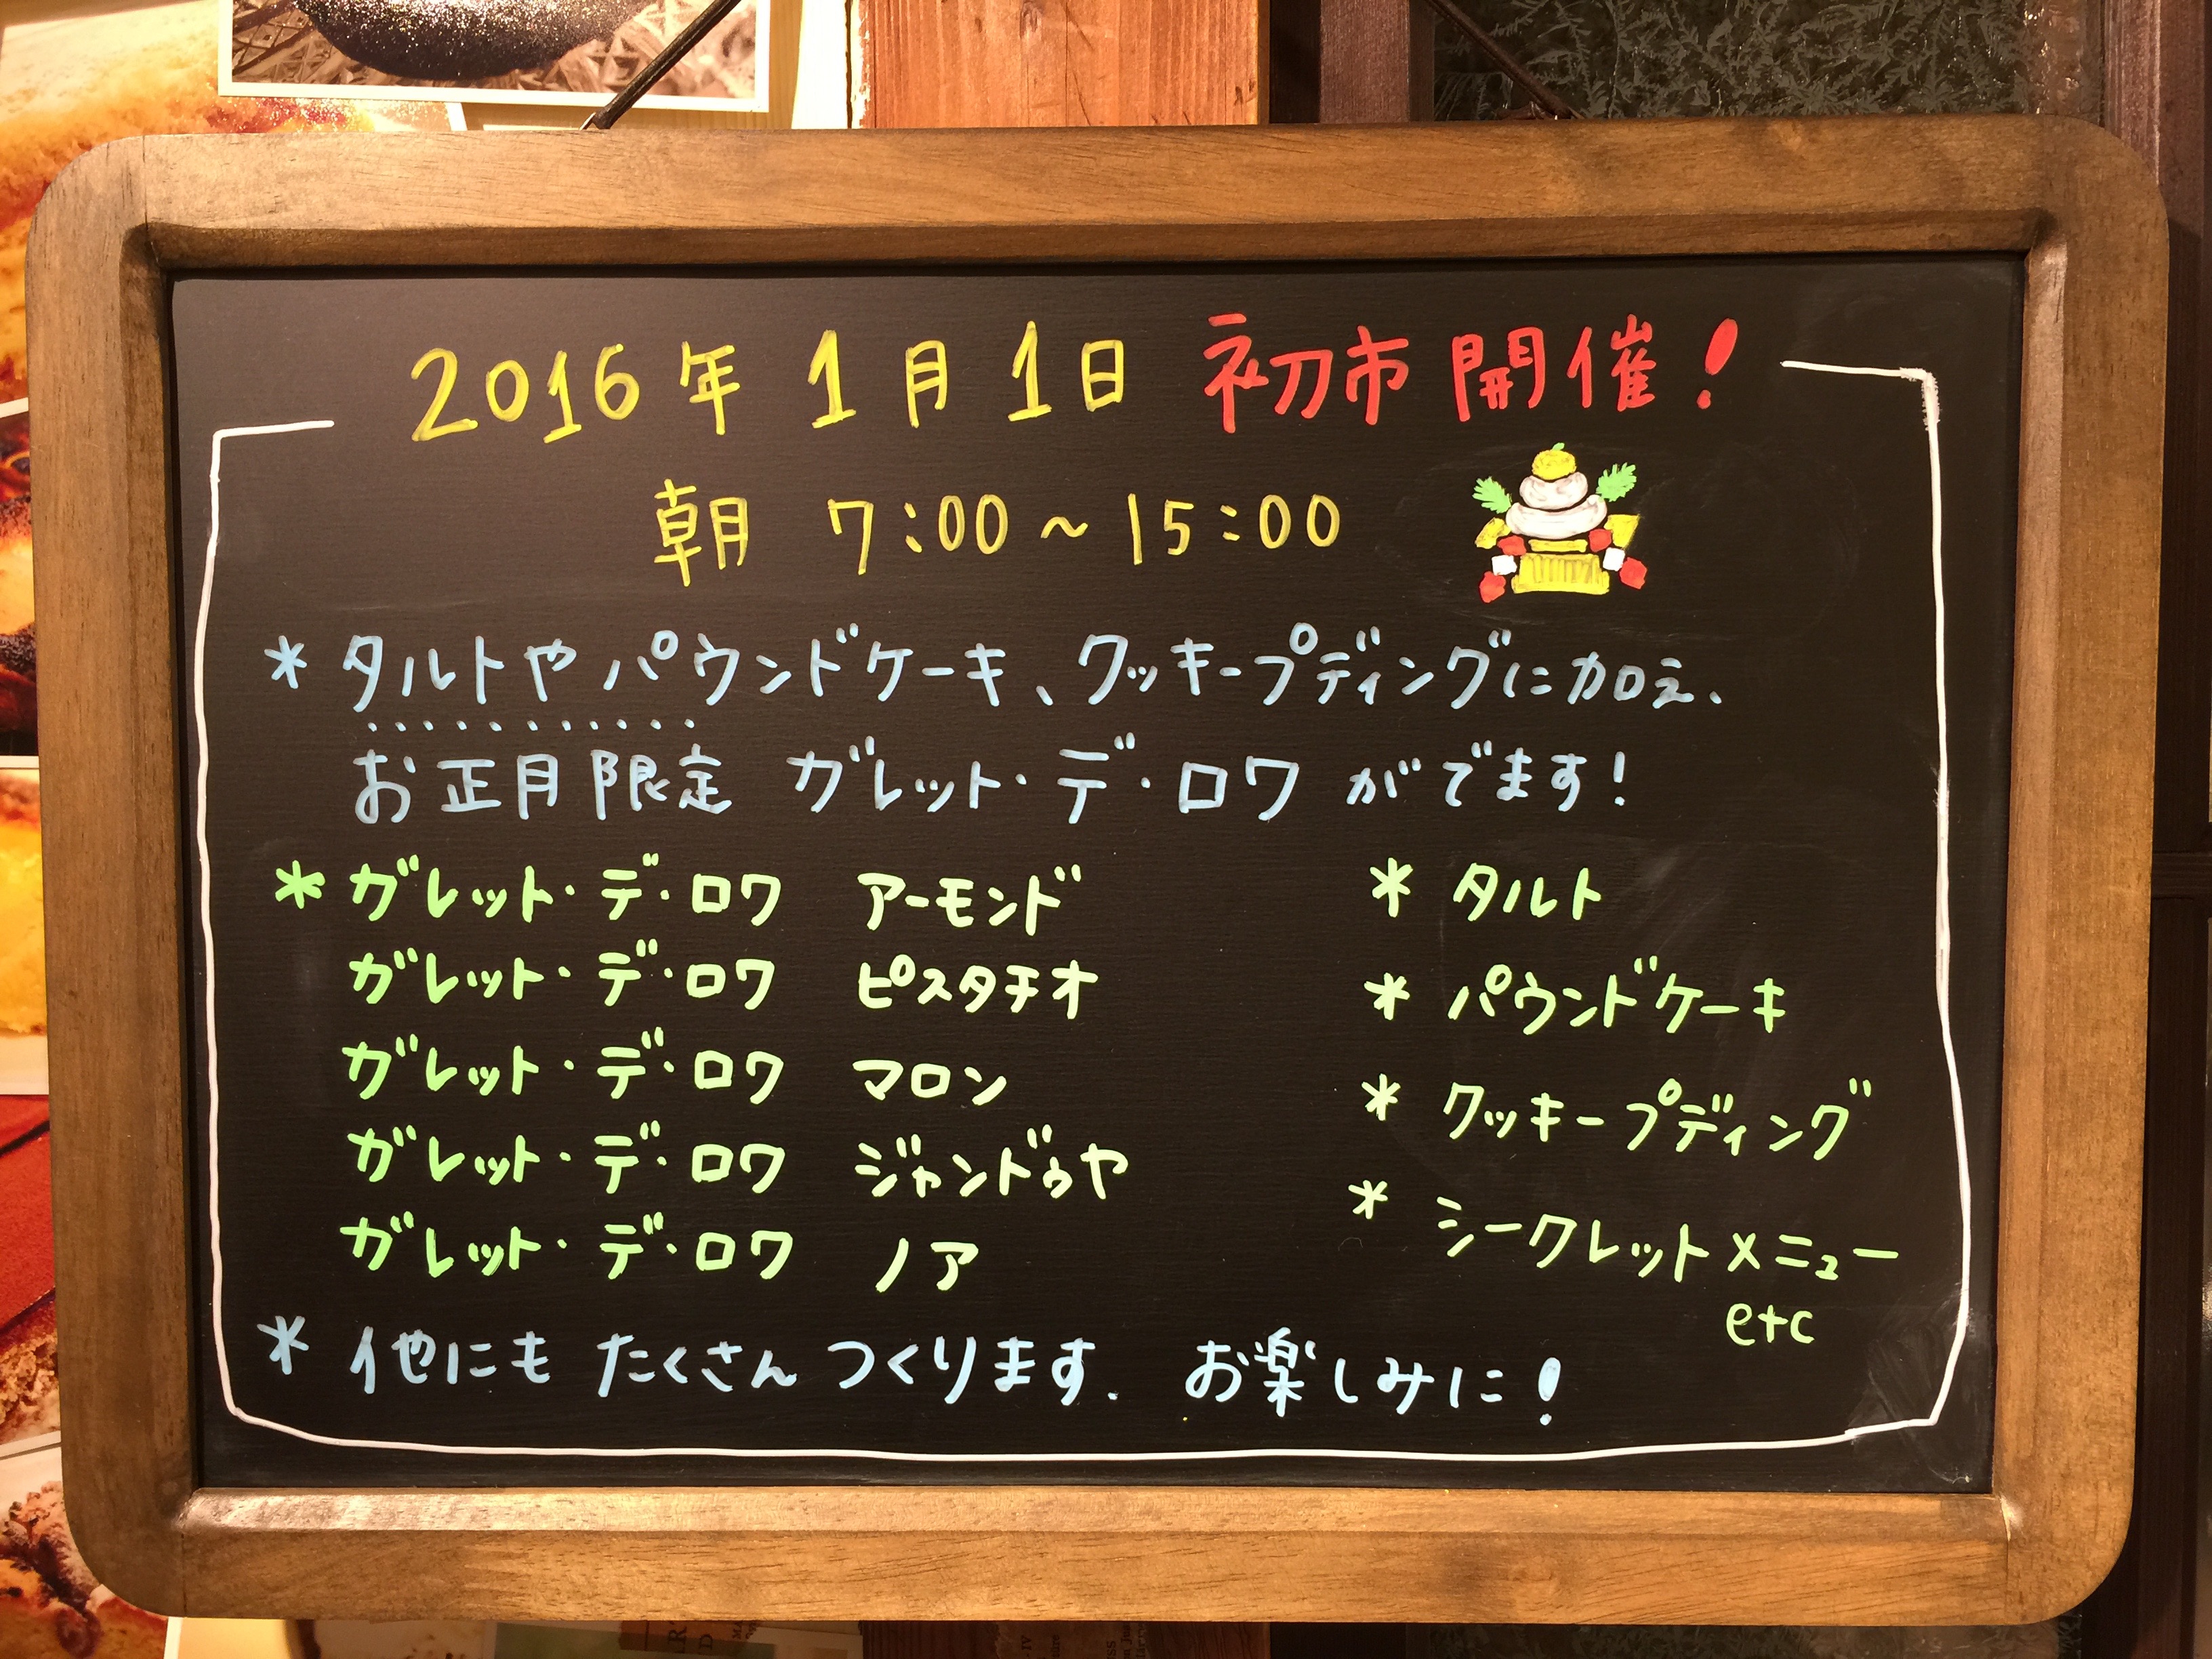 2016年 1月1日 初市開催!
朝 7:00~15:00
* タルトやパウンドケーキ、クッキープディングに加え、
お正月限定 ガレット・デ・ロワ がでます!
* ガレット・デ・ロワ アーモンド
ガレット・デ・ロワ ピスタチオ
ガレット・デ・ロワ マロン
ガレット・デ・ロワ ジャンドゥヤ
ガレット・デ・ロワ ノア
* タルト
* パウンドケーキ
* クッキープディング
* シークレットメニュー
etc
* 他にも たくさん つくります. お楽しみに!